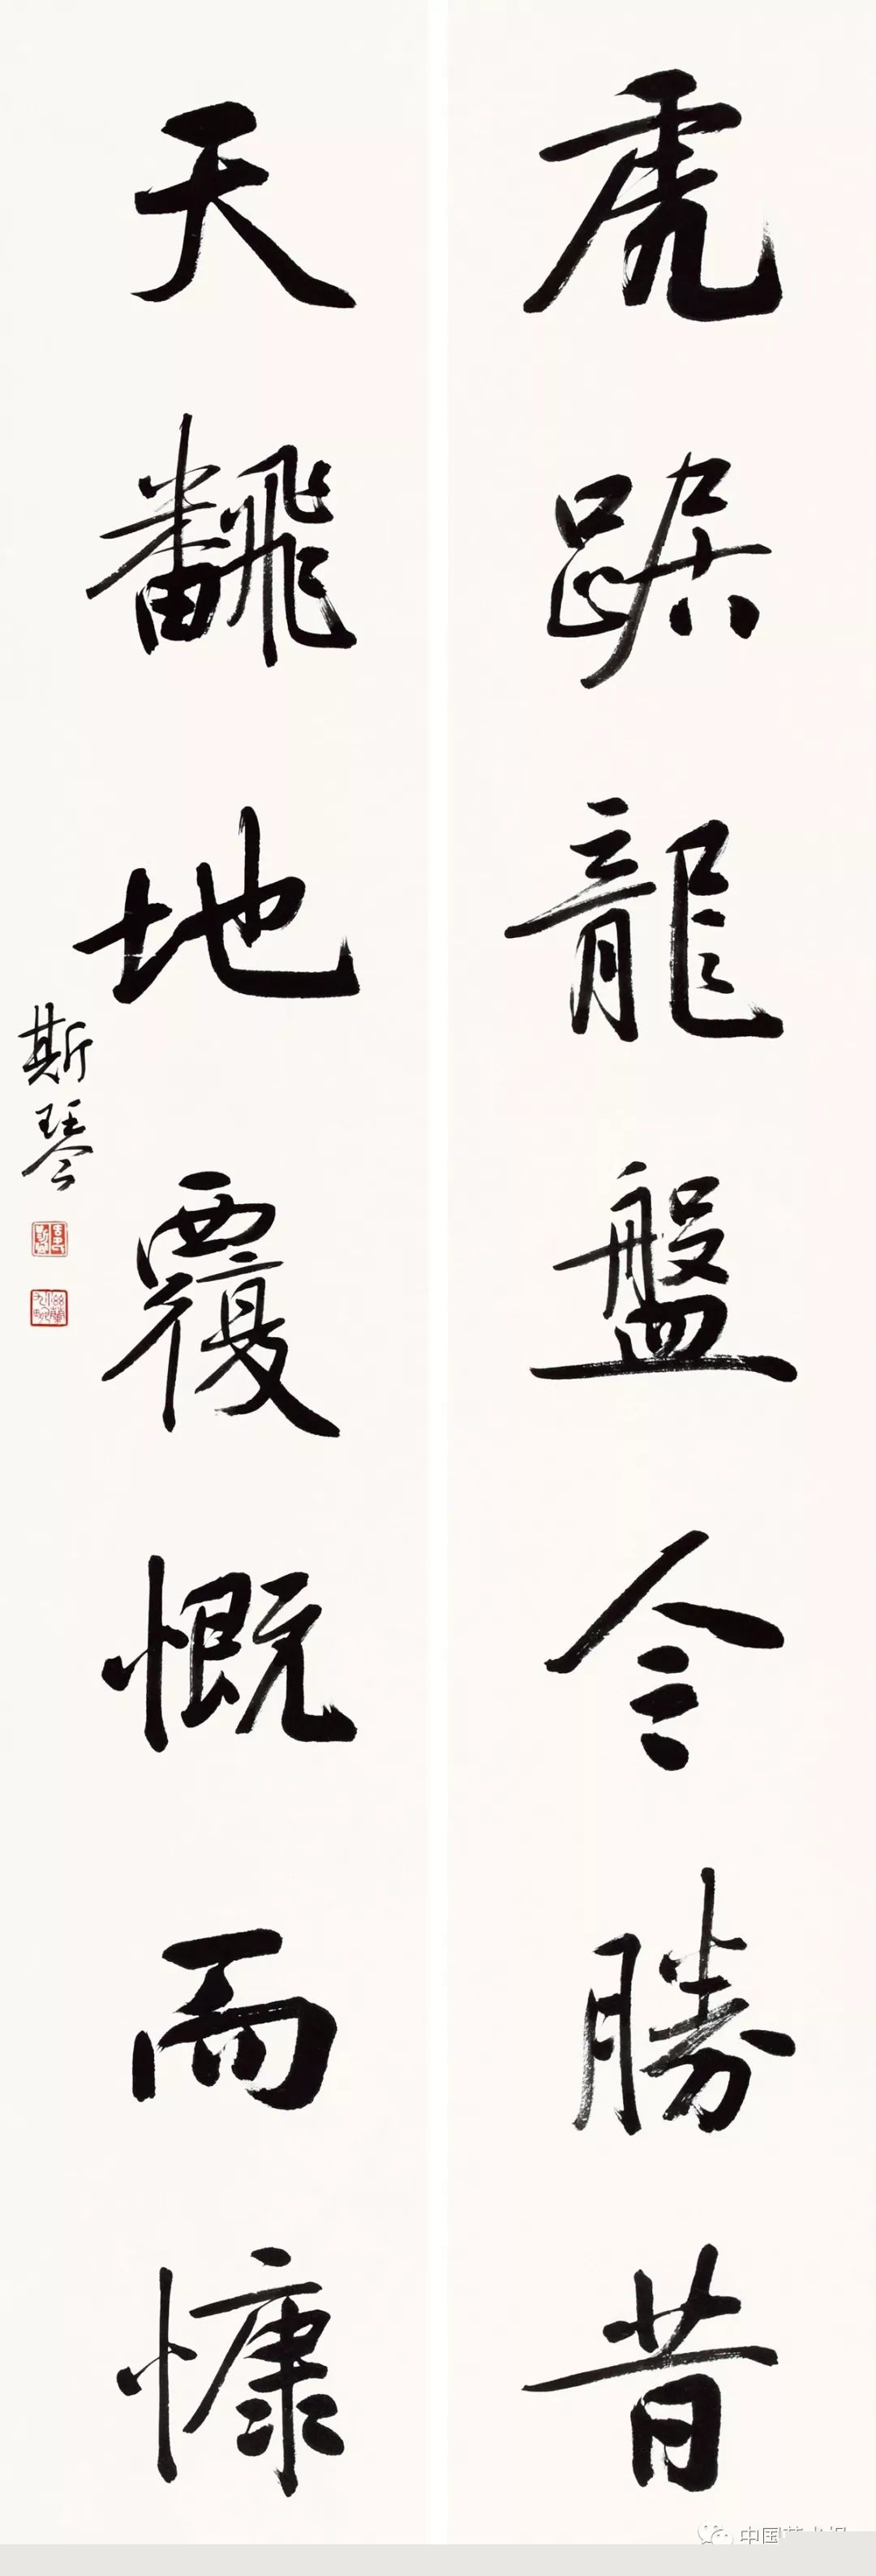 虎踞龍盤今勝昔
天飜地覆慨而慷
斯琴
中国